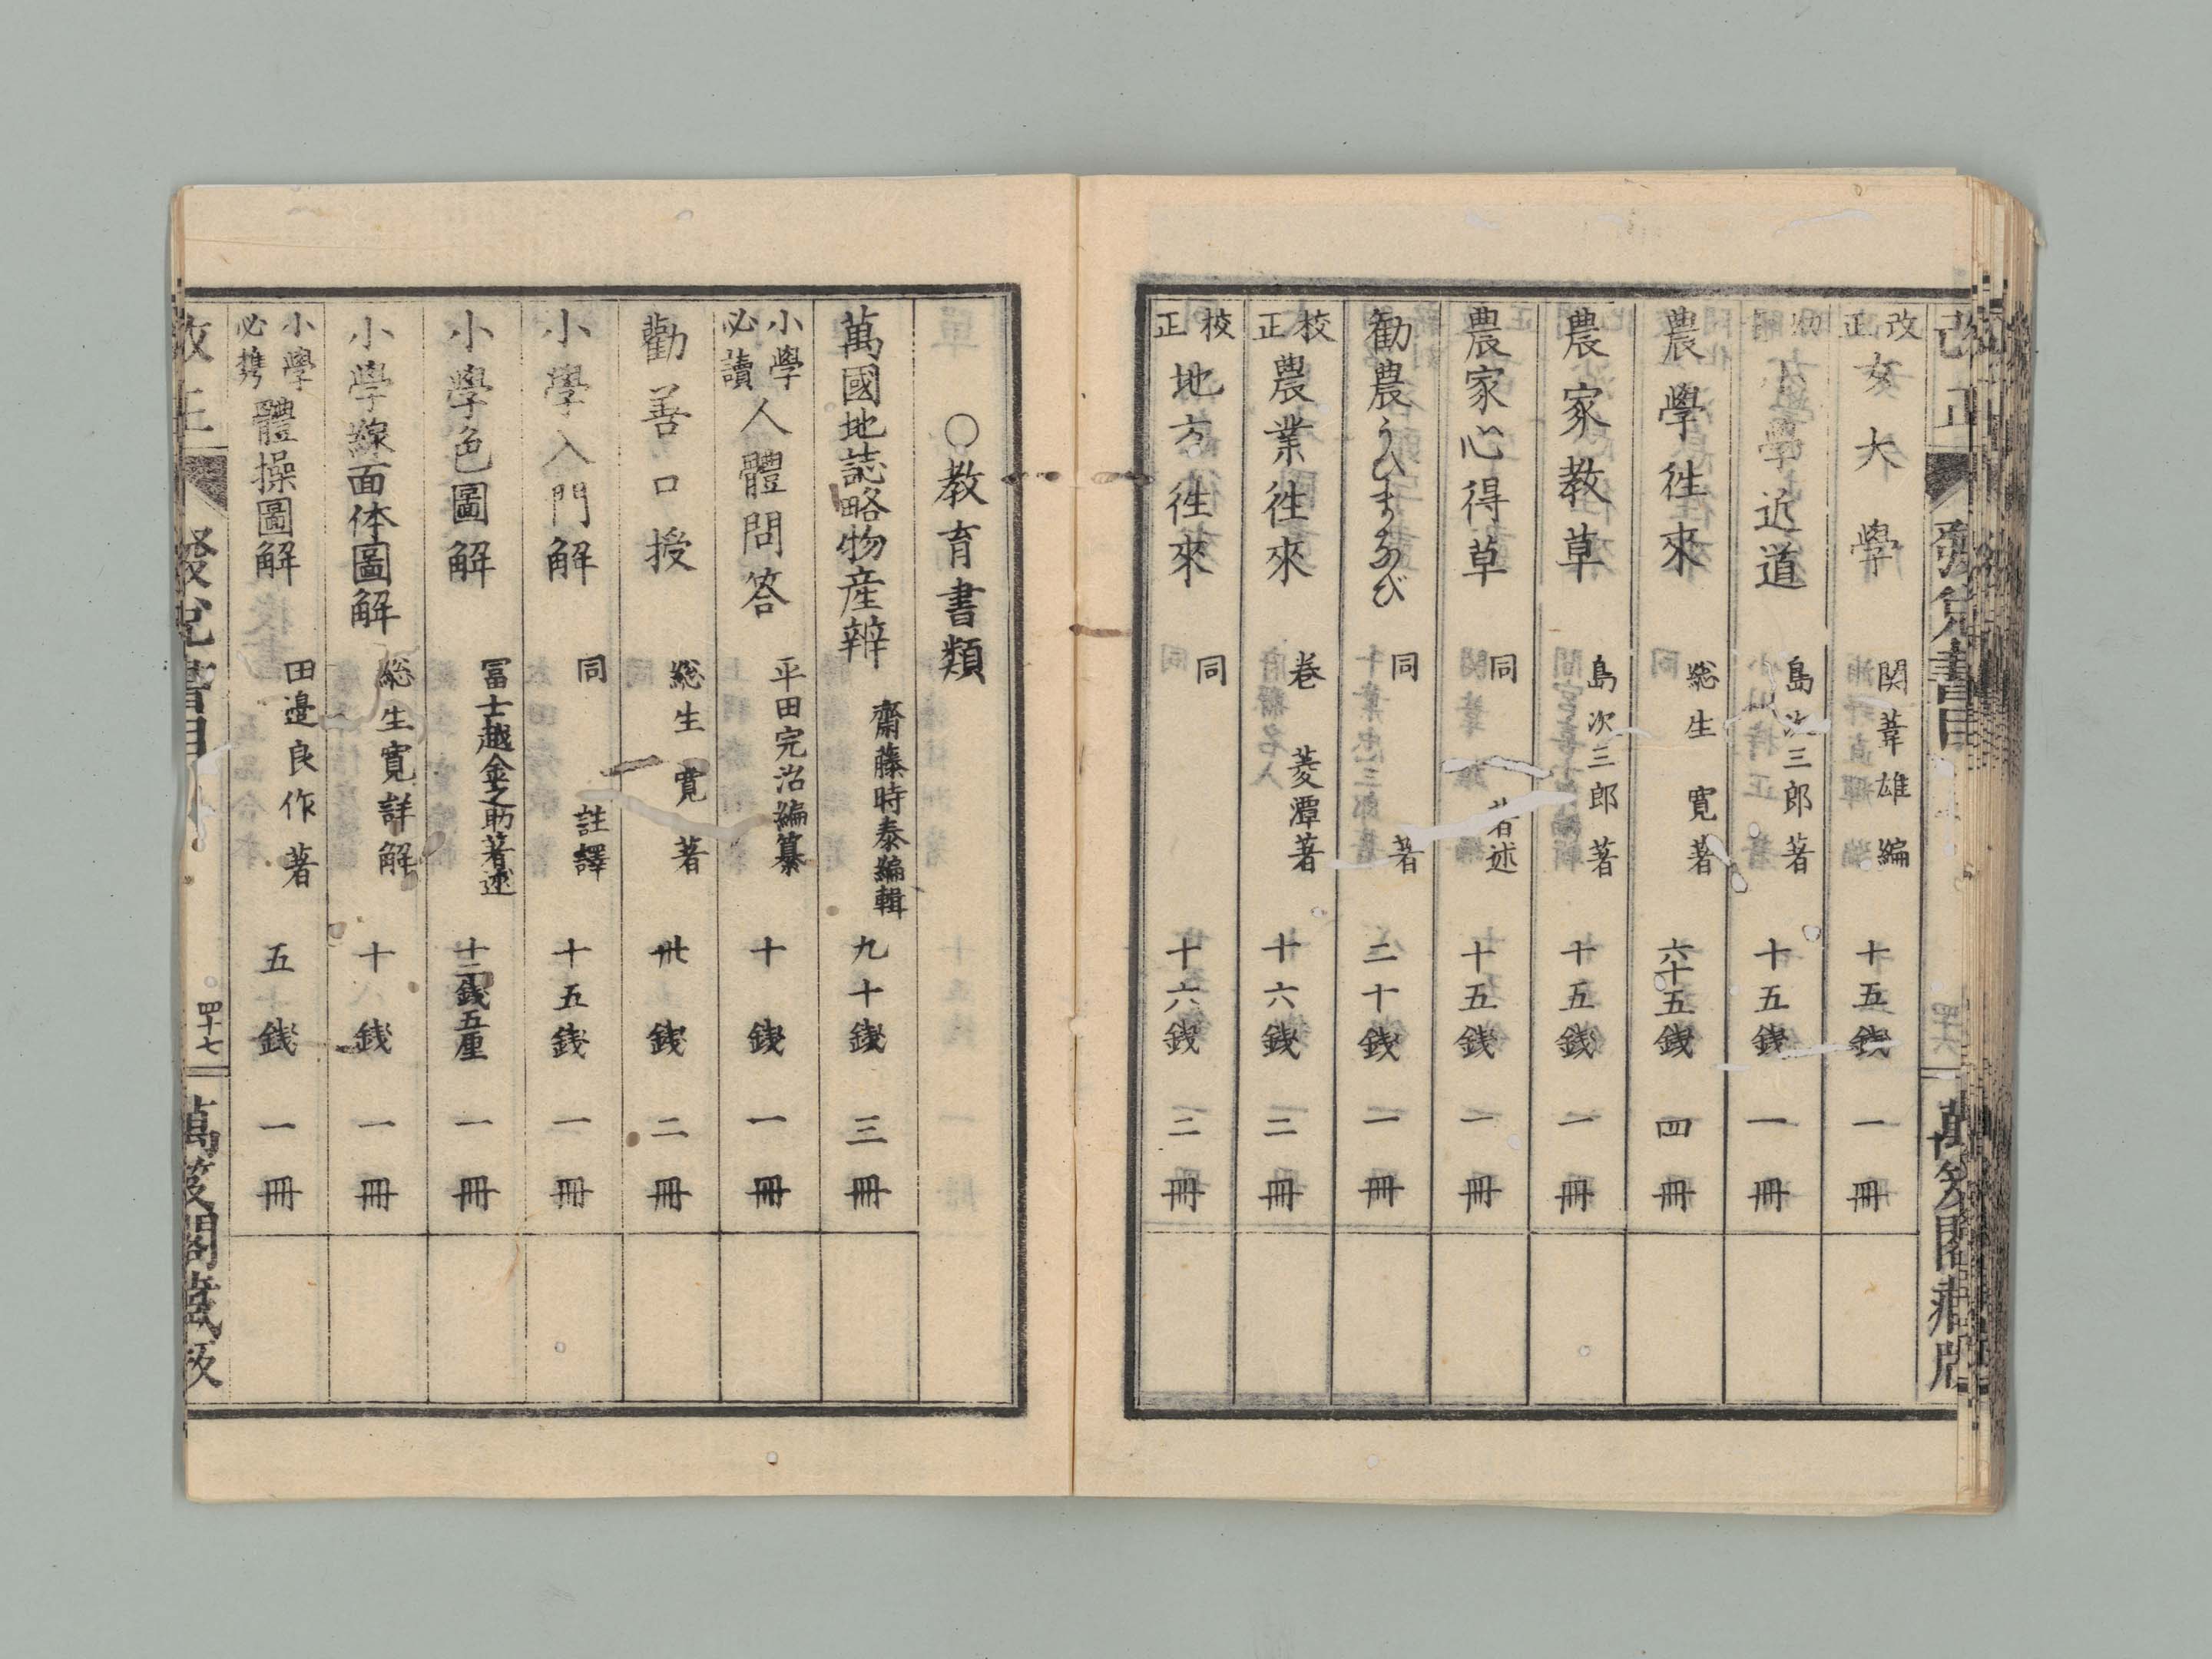 改正 發兌書目 萬笈閣藏版
改正 女大學 関葦雄編 十五銭 一冊
近道 島次三郎著 十五銭 一冊
農學徃來 総生寛著 六十五銭 四冊
農家教草 島次三郎著 十五銭 一冊
農家心得草 同 著述 十五銭 一冊
勧農うひまなび 同 著 二十銭 一冊
校正 農業徃來 巻菱潭著 十六銭 二冊
校正 地方徃來 同 十六銭 二冊
○教育書類
萬國地誌略物産辨 齋藤時泰編輯 九十銭 三冊
小學必讀 人體問答 平田完治編纂 十銭 一冊
勸善口授 総生寛著 卅銭 二冊
小學入門解 同 註譯 十五銭 一冊
小學色圖解 冨士越金之助著述 十二銭五厘 一冊
小學線面体圖解 総生寛詳解 十銭 一冊
小學必携 體操圖解 田邉良作著 五銭 一冊
改正 發兌書目 四十七 萬笈閣藏版